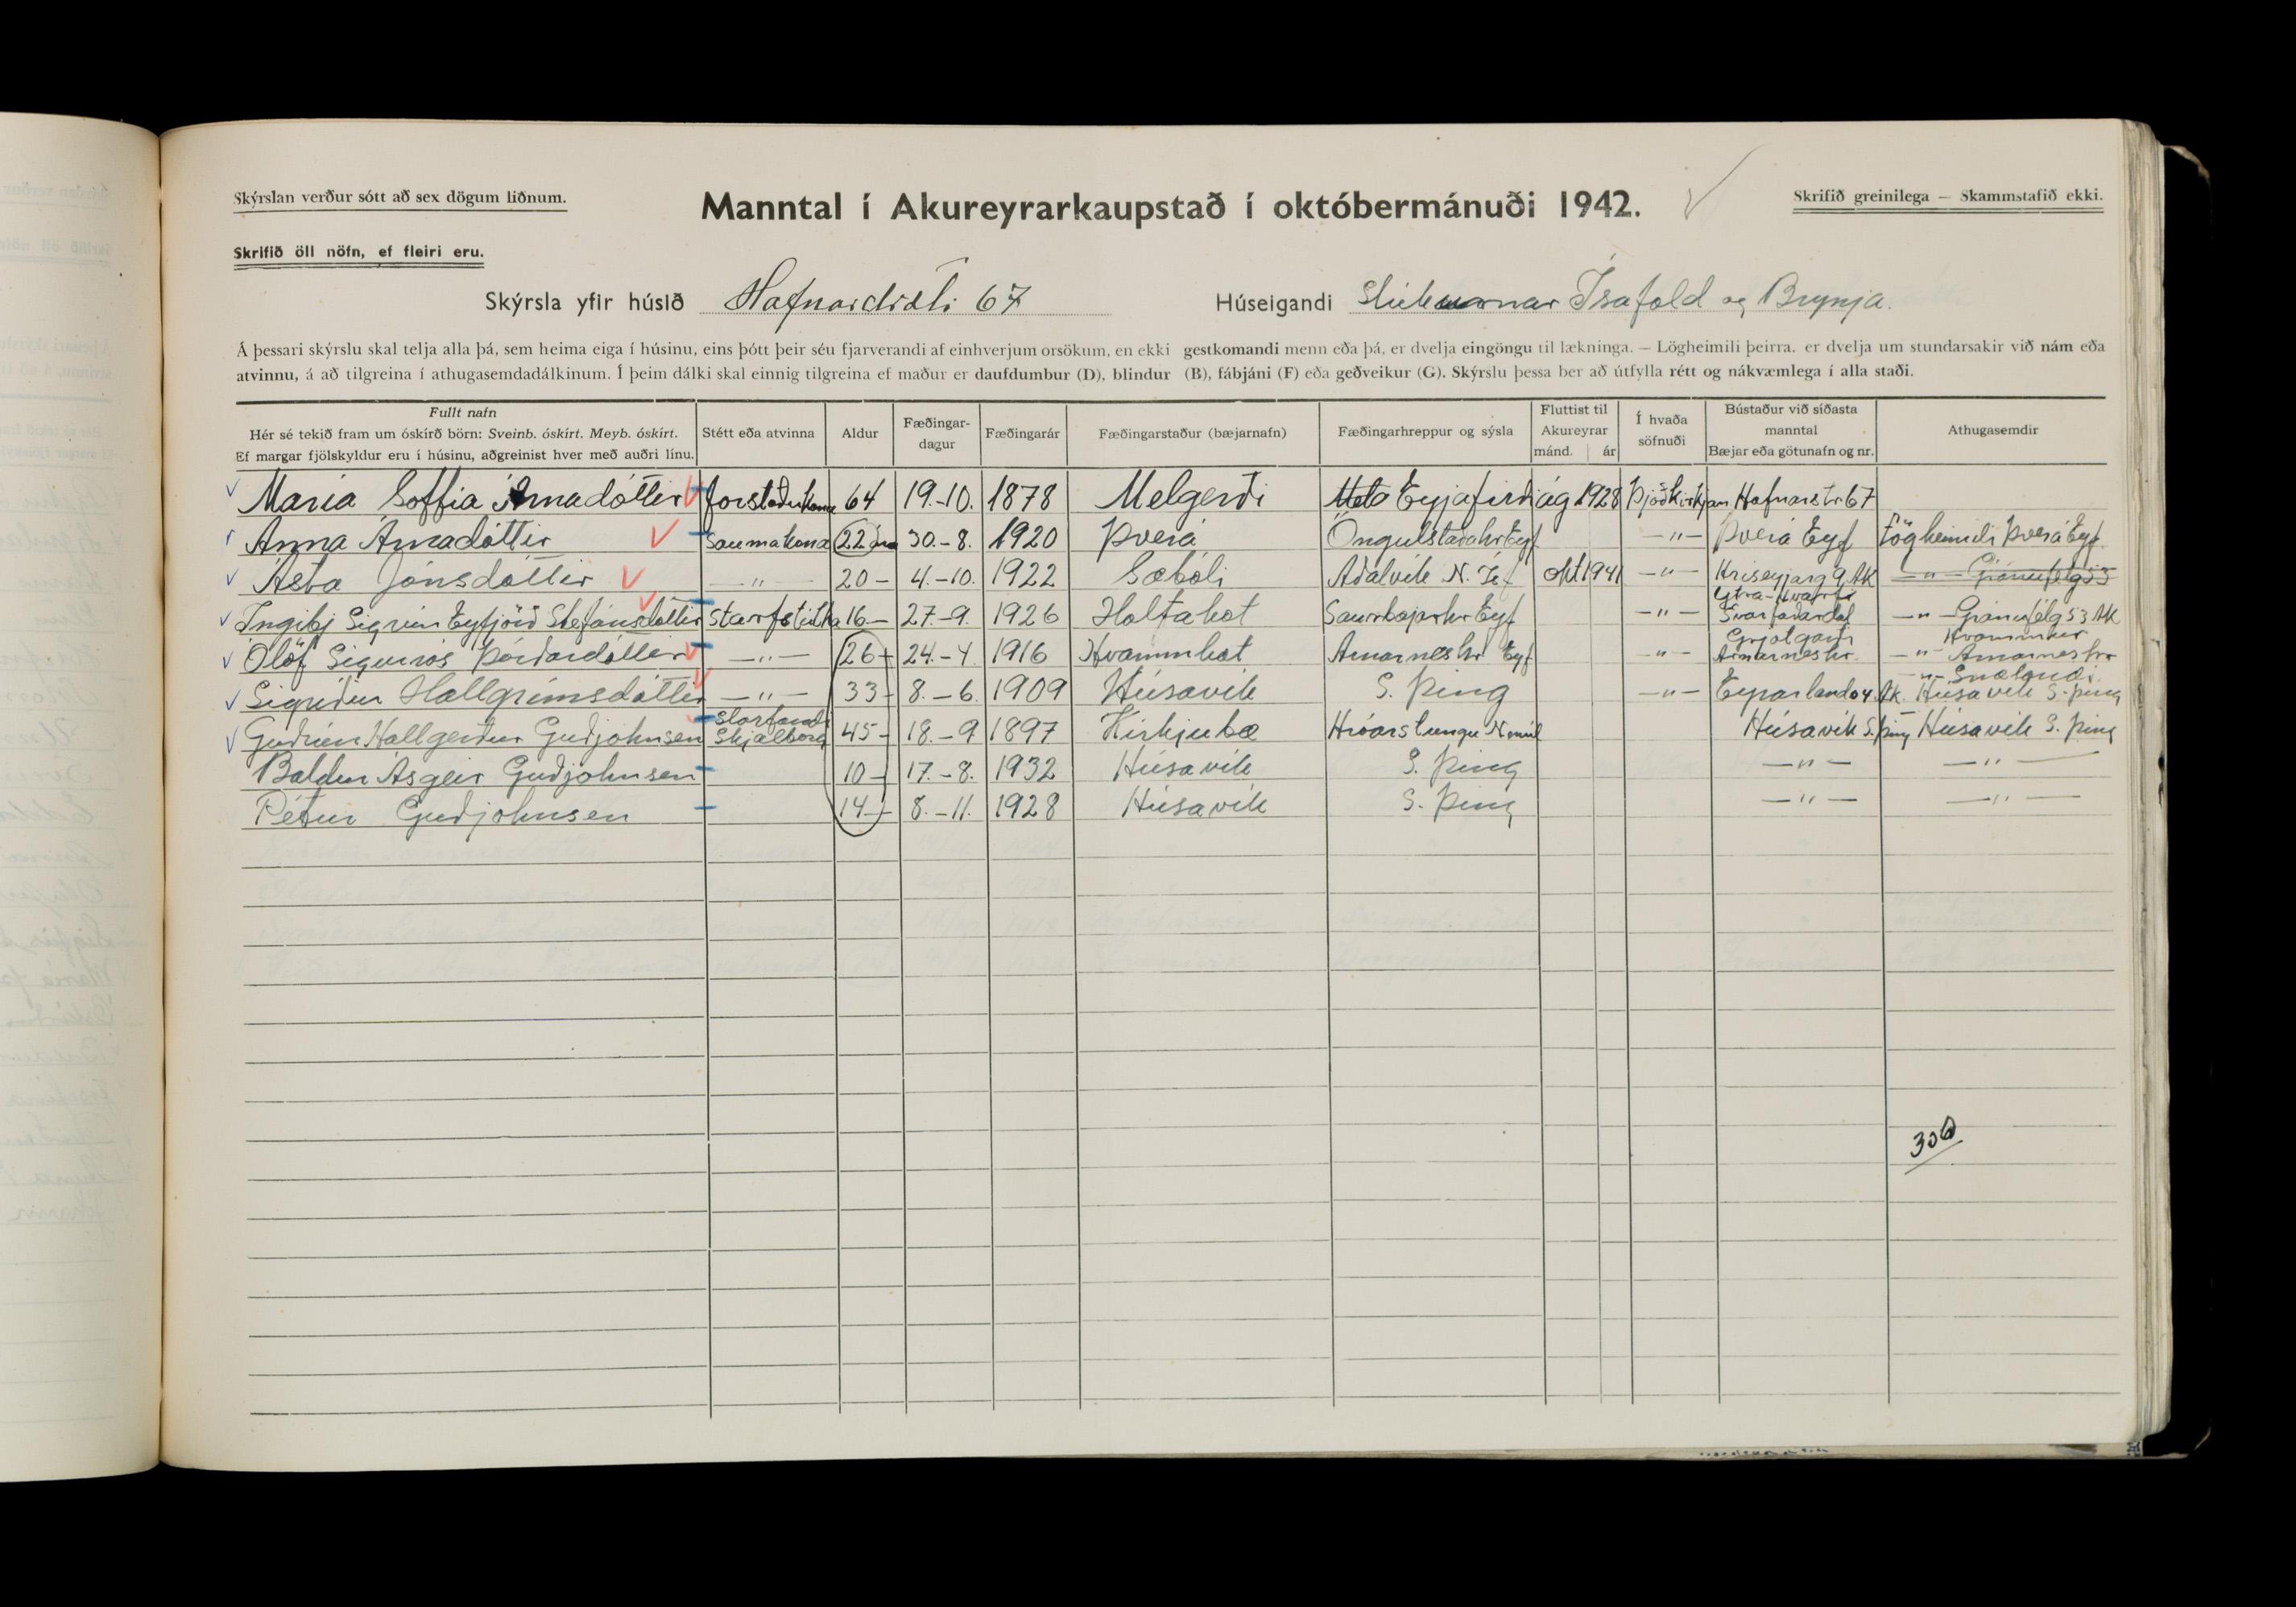 Skýrslan verður sótt að sex dögum liðnum.
Manntal í Akureyrarkaupstað í októbermánuði 1942.
Skrifið greinilega — Skammstafið ekki.
Skrifið öll nöfn, ef fleiri eru.
Skýrsla yfir húsið Hafnarstræti 67 Húseigandi Stúkurnar Ísafold og Brynja.
Á þessari skýrslu skal telja alla þá, sem heima eiga í húsinu, eins þótt þeir séu fjarverandi af einhverjum orsökum, en ekki gestkomandi menn eða þá, er dvelja eingöngu til lækninga. — Lögheimili þeirra. er dvelja um stundarsakir við nám eða
atvinnu, á að tilgreina í athugasemdadálkinum. Í þeim dálki skal einnig tilgreina ef maður er daufdumbur (D), blindur (B), fábjáni (F) eða geðveikur (G). Skýrslu þessa ber að útfylla rétt og nákvæmlega í alla staði.
Fullt nafn
Hér sé tekið fram um óskírð börn: Sveinb. óskírt. Meyb. óskírt.
Ef margar fjölskyldur eru í húsinu, aðgreinist hver með auðri línu.
Stétt eða atvinna
Aldur
Fæðingar-
dagur
Fæðingarár
Fæðingarstaður (bæjarnafn)
Fæðingarhreppur og sýsla
Fluttist til
Akureyrar
mánd. ár
Í hvaða
söfnuði
Bústaður við síðasta
manntal
Bæjar eða götunafn og nr.
Athugasemdir
María Soffía Árnadóttir forstöðukona 64 19.-10. 1878 Melgerði Eyjafirði ág 1928 Þjóðkirkjan Hafnarstr 67
Anna Árnadóttir Saumakona 22 ára 30.-8. 1920 Þverá Öngulstaðahr Eyf —"— Þverá Eyf Lögheimili Þverá Eyf
Ásta Jónsdóttir —"— 20 — 4.-10. 1922 Sæbóli Aðalvík N. Ísf okt 1941 —"— Hríseyjarg 9 Ak —"— Gránufélg 53
Ingibj Sigrún Eyfjörð Stefánsdóttir Starfstúlka 16 — 27.-9. 1926 Holtakot Saurbæjarhr Eyf —"— Ytra-Hvarfi Svarfaðardal —"— Gránufélg 53 Ak
Ólöf Sigurrós Þórðardóttir —"— 26 — 24.-4. 1916 Hvammkot Arnarneshr Eyf —"— Grjótgarði Arnarneshr. —"— Hvammur Arnarneshr
Sigríður Hallgrímsdóttir —"— 33 — 8.-6. 1909 Húsavík S. Þing —"— Eyrarlandsv. Ak. —"— Húsavík S. Þing
Guðrún Hallgerður Guðjohnsen Starfandi Skjaldborg 45 — 18.-9 1897 Kirkjubæ Hróarstungu N múl Húsavík S. þing Húsavík S. Þing
Baldur Ásgeir Guðjohnsen 10 — 17.-8. 1932 Húsavík S. Þing —"— —"—
Pétur Guðjohnsen 14 — 8.-11. 1928 Húsavík S. Þing —"— —"—